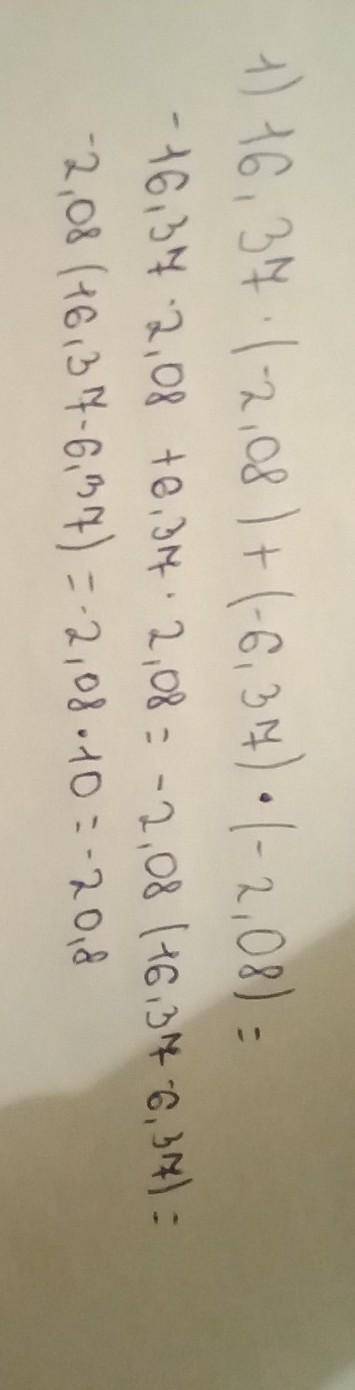 1) 16,37 · (-2,08) + (-6,37) · (-2,08) =
-16,37 · 2,08 + 6,37 · 2,08 = -2,08 (16,37 - 6,37) =
-2,08 (16,37 - 6,37) = -2,08 · 10 = -20,8